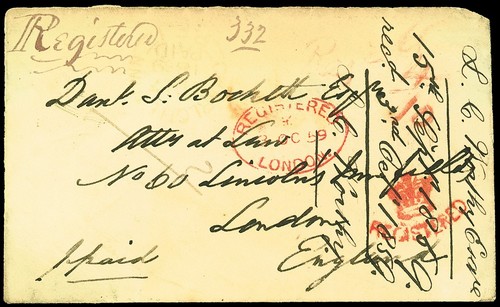 Registered
332
Danl. S. Bockett Esq
Atty at Law
No 60 Lincoln's Inn fields
London
England
paid
REGISTERED
OC 59
LONDON
REGISTERED
15th Septr 1859
recd 3rd Oct 1859